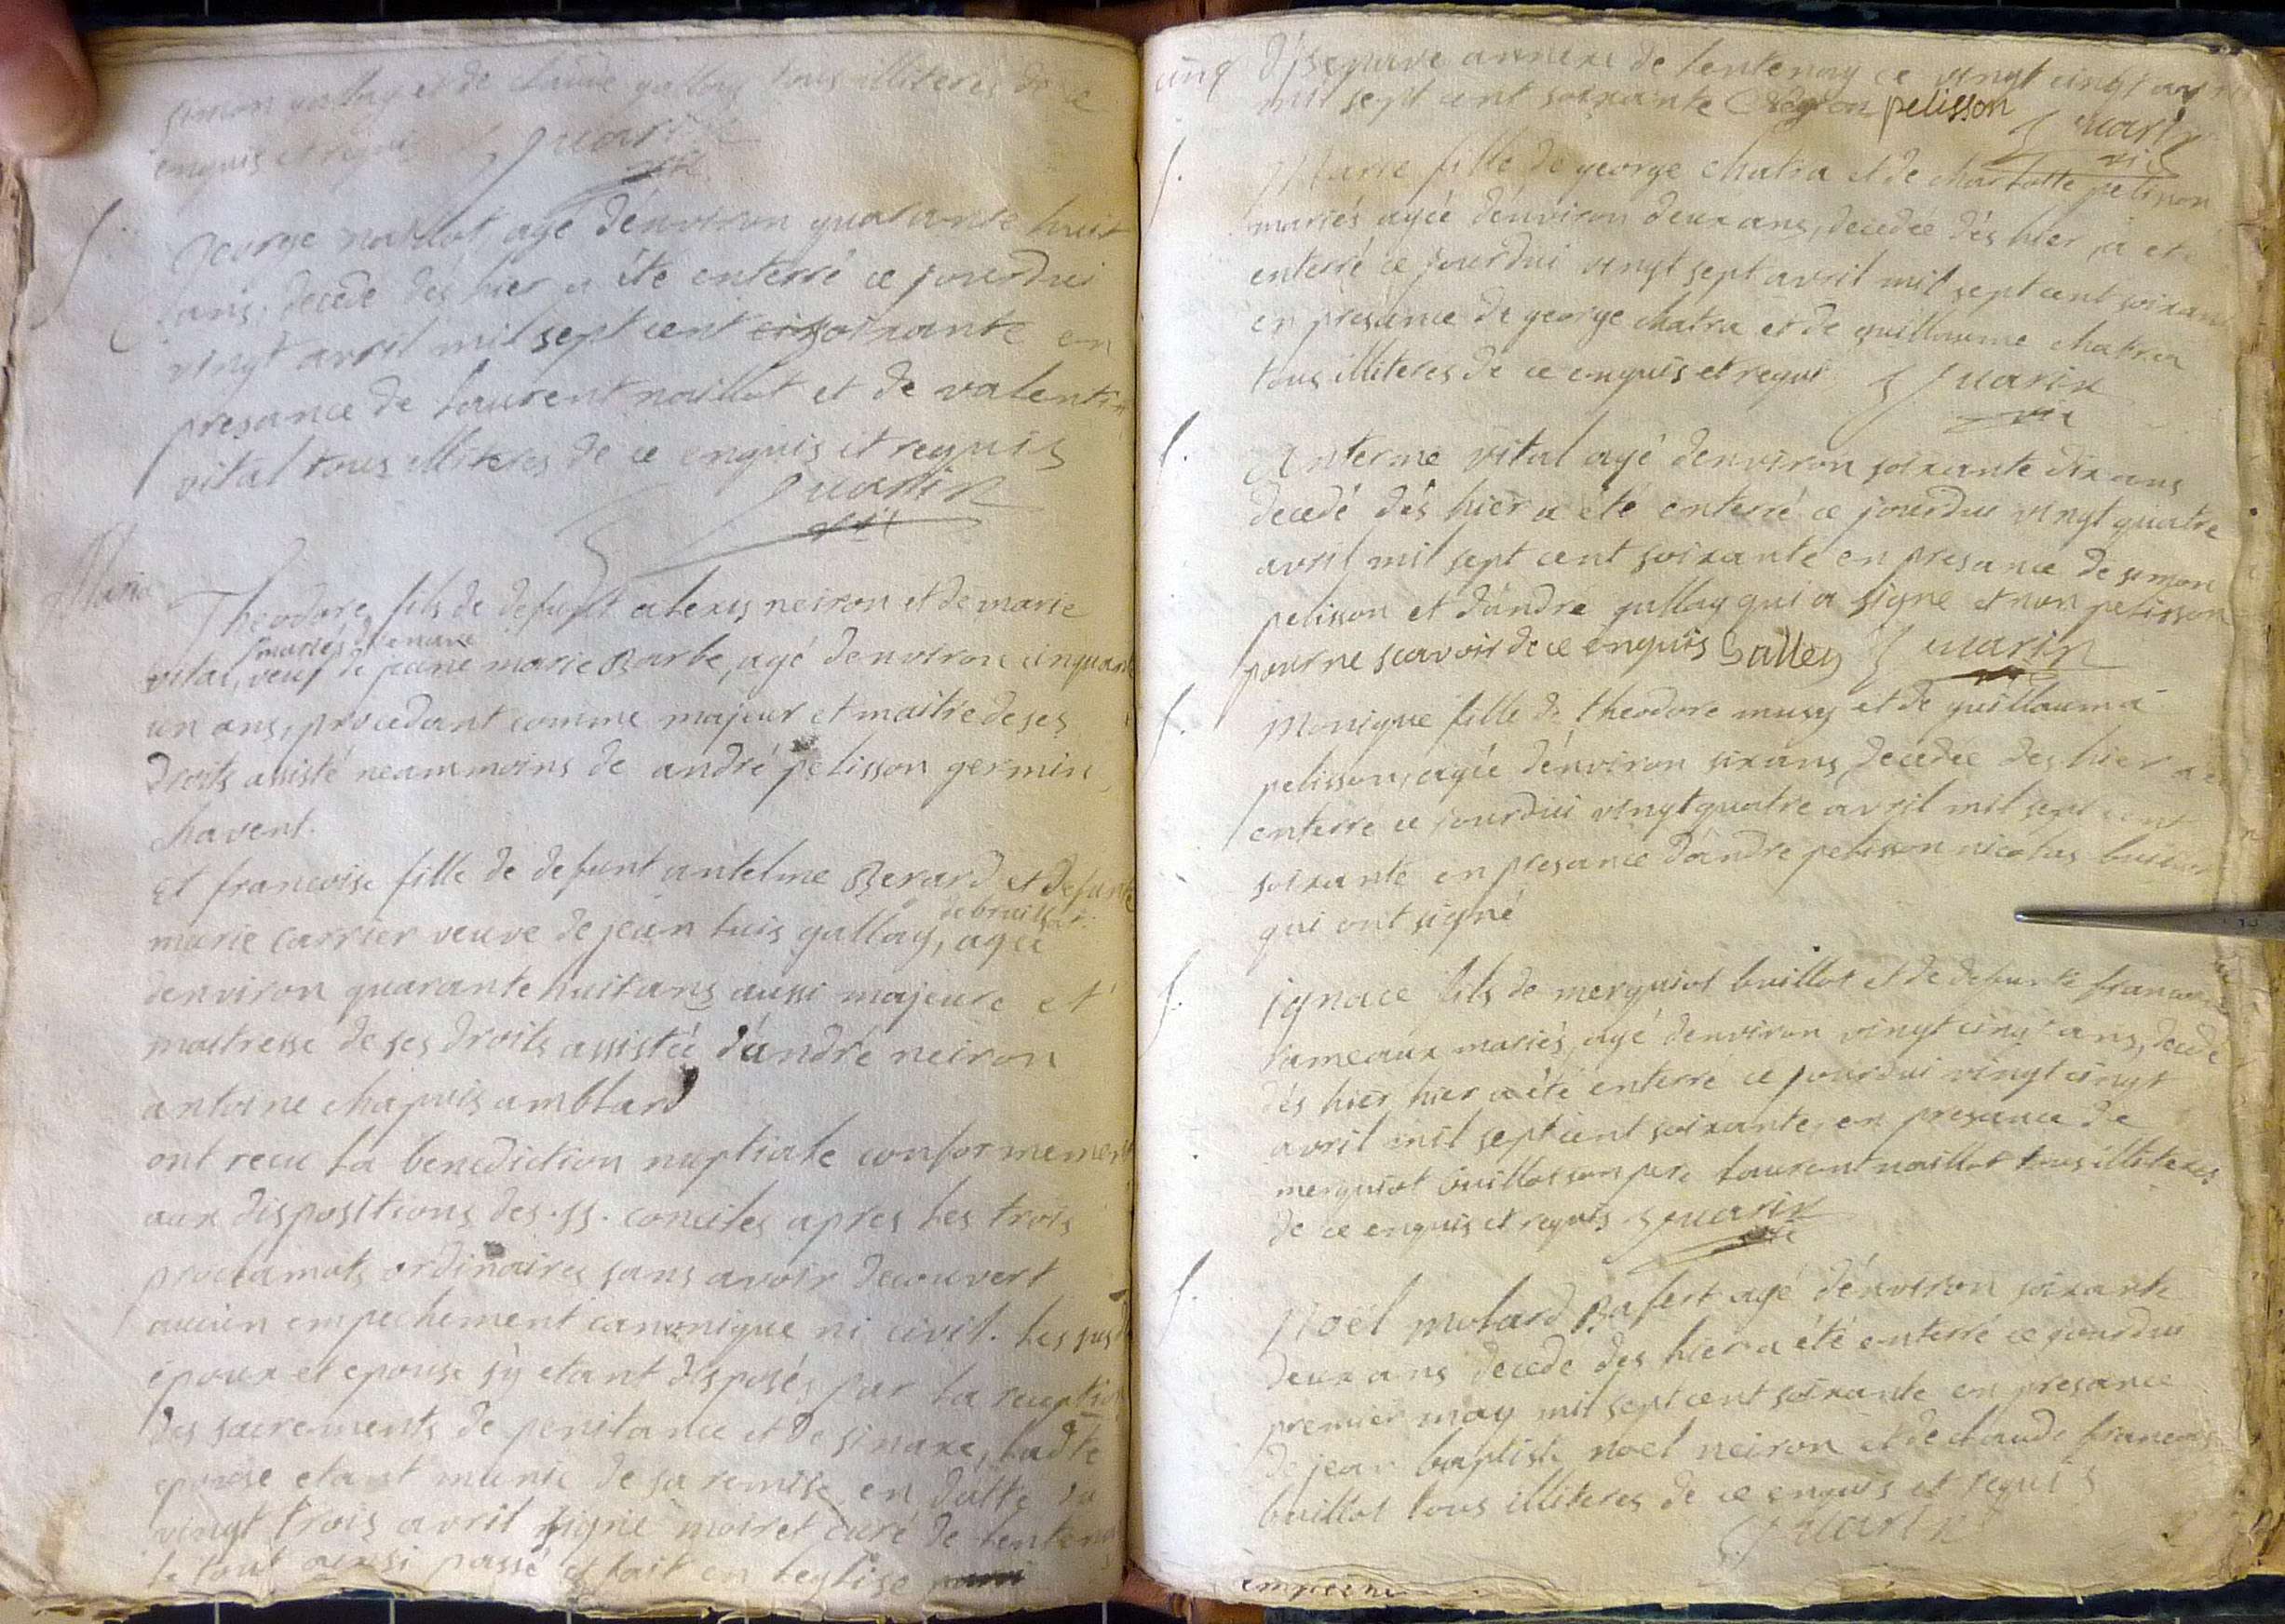 simon gallay et de claude gallay tous illiteres de ce
enquis et requis Guarin
vic
f. George naillot, agé d'environ quarante huit
ans, decedé dés hier a été enterré ce jourdui
vingt avril mil sept cent soixante en
presance de laurent naillot et de valentin
vital tous illiteres de ce enquis et requis
Guarin
vic
Maria
Theodore, fils de defunt alexis neiron et de marie
mariés
vital, veuf de jeane marie Barbe, agé d'environ cinquante
un ans, procedant comme majeur et maitre de ses
droits assisté neammoins de andré pelisson germin
chavent.
Et francoise fille de defunt antelme Berard et defunte
marie carrier veuve de jean luis gallay, agée
denviron quarante huit ans aussi majeure et
maitresse de ses droits assistée d'andré neiron
antoine chapuis amblard
ont recu la benediction nuptiale conformement
aux dispositions des .ss. conciles apres les trois
proclamats ordinaires sans avoir decouvert
aucun empechement canonique ni civil. les
epoux et epouse s'y etant disposés par la reception
des sacrements de penitance et de sinaxe, ladte
epouse etant munie de sa remise en datte du
vingt trois avril signé moiret curé de lentenay
le tout ainsi passé et fait en leglise
cinq d'isenave annexe de lentenay ce vingt cinq avril
mil sept cent soixante pelisson Guarin
vic
f. Marie fille de george chatra et de charlotte pelisson
mariés agée d'environ deux ans, decedée dés hier, a eté
enterré ce jourdui vingt sept avril mil sept cent soixante
en presance de george chatra et de guillaume chatra
tous illiteres de ce enquis et requis Guarin
vic
f. Anterme vital agé denviron soixante dix ans
decedé dés hier a été enterré ce jourdui vingt quatre
avril mil sept cent soixante en presance de simon
pelisson et d'andré gallay qui a signé et non pelisson
pour ne scavoir de ce enquis Galley Guarin
f. Monique fille de theodore musy et de guillauma
pelisson, agée d'environ six ans, decedée des hier a été
enterré ce jourdui vingt quatre avril mil sept cent
soixante en presance d'andre pelisson nicolas buillot
qui ont signé
f. ignace fils de merguiot buillot et de defunte francoise
rameaux mariés, agé d'environ vingt cinq ans, decedé
dés hier hier a été enterré ce jourdui vingt cinq
avril mil sept cent soixante, en presance de
merguiot buillot son pere laurent naillot tous illiteres
de ce enquis et requis Guarin
vic
f. Noël molard Bafert agé d'environ soixante
deux ans decedé des hier a été enterré ce jourdui
premier may mil sept cent soixante en presance
de jean baptiste noel neiron et de claude francois
buillot tous illiteres de ce enquis et requis
Guarin